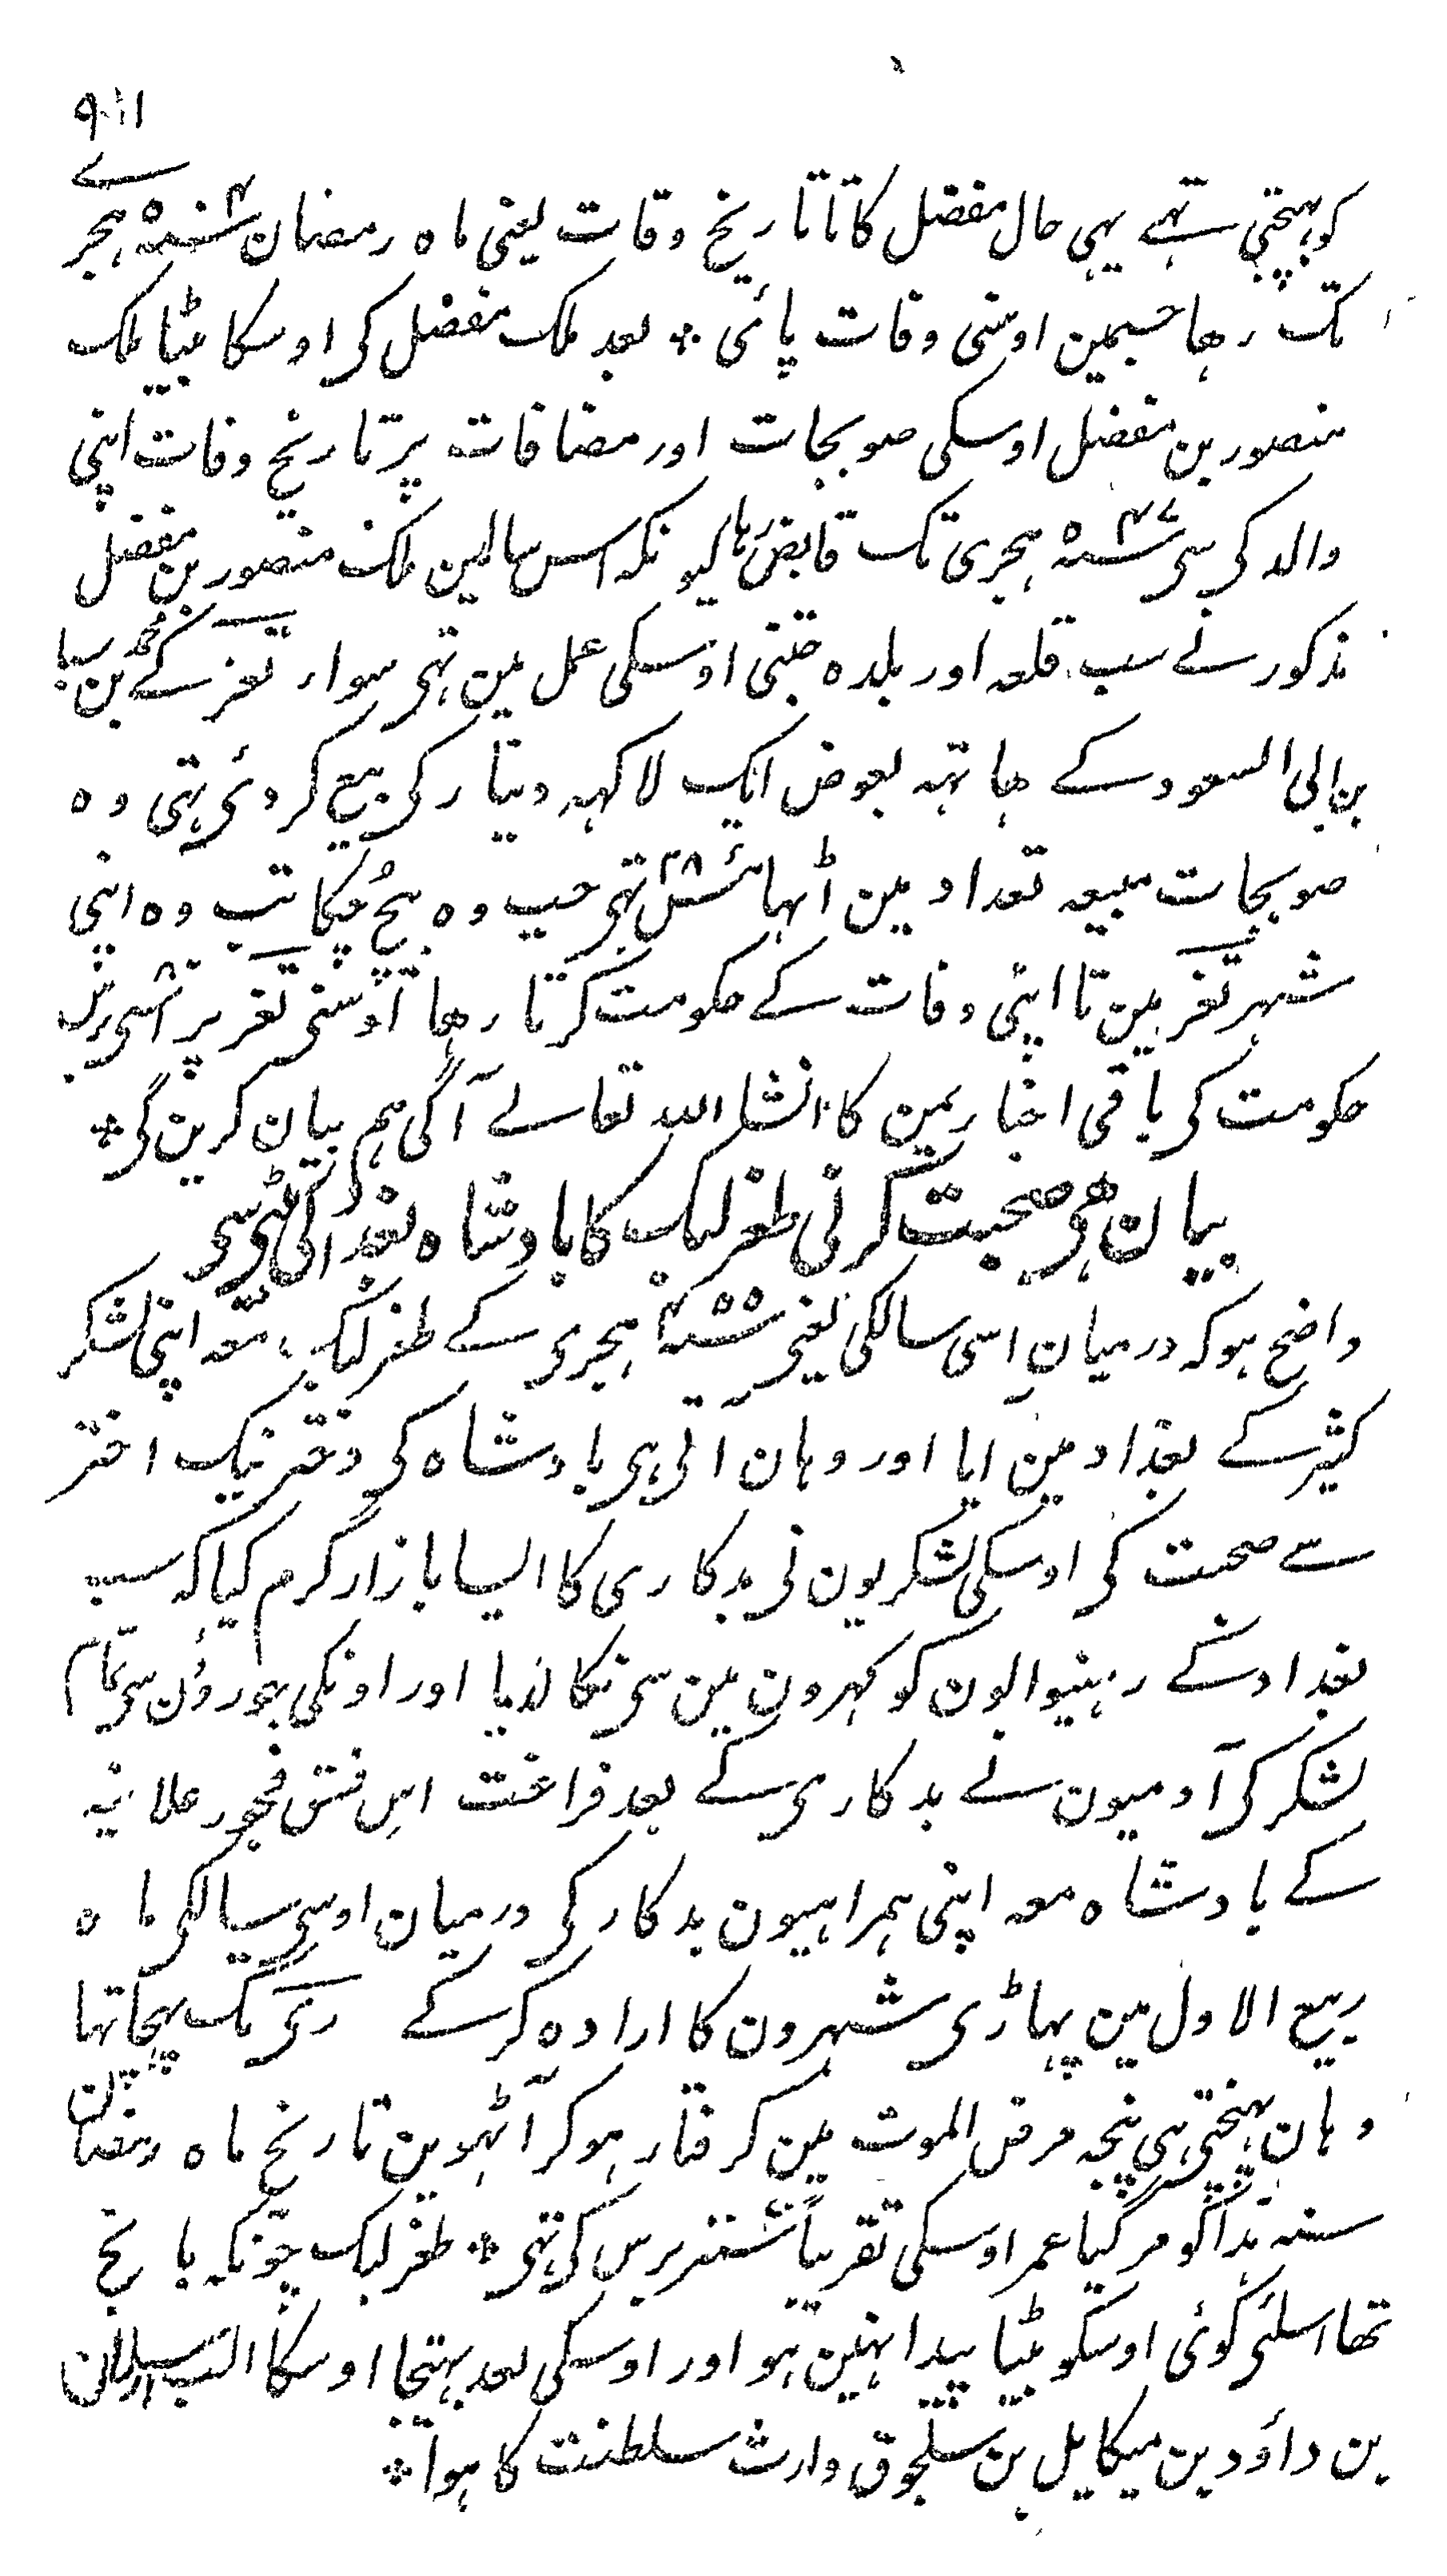 ۹۱۱
کو پہنچی تہے یہی حال مفضل کا تا تاریخ وفات یعنی ماہ رمضان سنہ ۵۰۴ ہجرے
تک رہا جسمین اوسنی وفات پائی ٭ بعد ملک مفضل کی اوسکا بیٹا ملک
منصور بن مفضل اوسکی صوبجات اور مضافات پر تاریخ وفات اپنی
والد کی سی سنہ ۵۴۷ ہجری تک قابض رہا کیونکہ اس سالمین ملک منصور بن مفضل
مذکور نے سب قلعہ اور بلدہ جتنی اوسکی عمل مین تہی سواء تعز کے محمد بن سبا
بن ابی السعود کے ہاتہہ بعوض ایک لاکہہ دینار کی بیع کر دئی تہی وہ
صوبجات مبیعہ تعداد مین اٹہائس ۲۸ تہی جب وہ بیچ چکا تب وہ اپنی
شہر تعز مین تا اپنی وفات کے حکومت کرتا رہا اوسنی تعز پر اسی برس
حکومت کی باقی اخبار یمن کا انشاء اللہ تعالے آگی ہم بیان کرین گی ٭
بیان ہی صحبت کرنی طغرلبک کا بادشاہ بغداد کی بیٹی سی
واضح ہو کہ درمیان اسی سالکی یعنی سنہ ۴۵۵ ہجری کے طغرلبک معہ اپنی لشکر
کثیر کے بغداد مین آیا اور وہان آتی ہی بادشاہ کی دختر نیک اختر
سے صحبت کی اوسکی لشکریون نی بدکاری کا ایسا بازار گرم کیا کہ سب
بغداد کے رہنیوالون کو گہرون مین سی نکالدیا اور اونکی جوروؤن سی تمام
لشکر کی آدمیون نے بدکاری کے بعد فراغت اس فسق فجور علانیہ
کے بادشاہ معہ اپنی ہمراہیون بدکار کی درمیان اوسی سالکی ماہ
ربیع الاول مین پہاڑی شہرون کا ارادہ کر کے ری تک پہنچا تہا
وہان پہنچتی ہی پنجہ مرض الموت مین گرفتار ہو کر آٹہوین تاریخ ماہ رمضان
سنہ ہذا کو مر گیا عمر اوسکی تقریباً ستر برس کی تہی ٭ طغرلبک چونکہ بانجھ
تہا اسلئی کوئی اوسکو بیٹا پیدا نہین ہو اور اوسکی بعد بہتیجا اوسکا الب ارسلان
بن داؤد بن میکایل بن سلجوق وارث سلطنت کا ہوا ٭